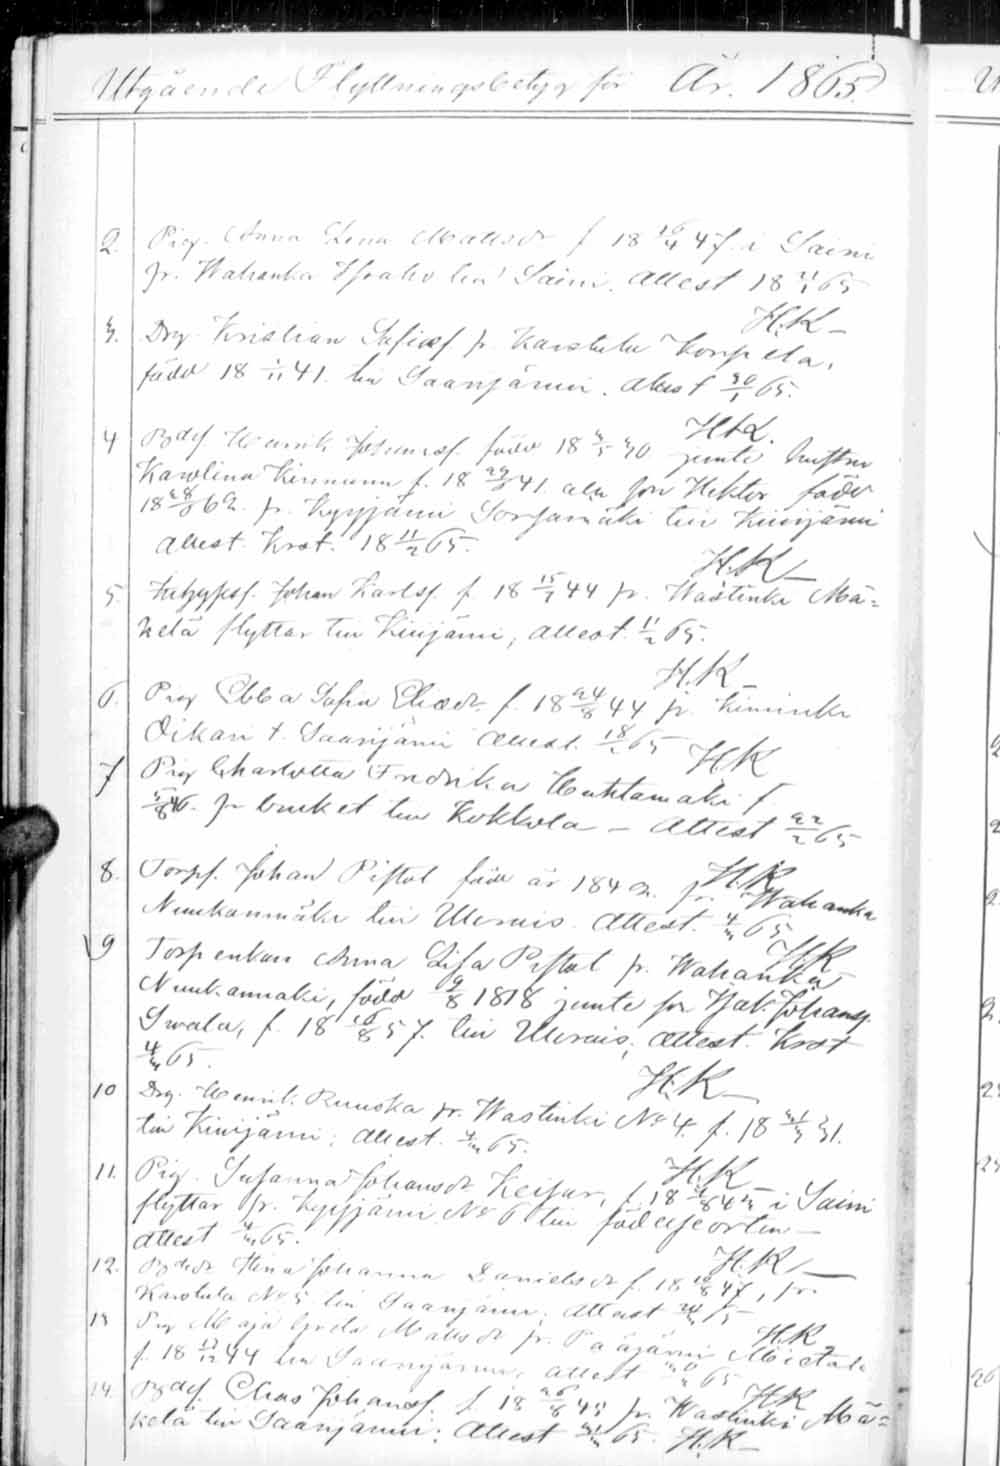 Utgående Flyttningsbetyg för År. 1865.
2. Pig. Anna Lena Mattsdr f 18 /4 47. i Saini
fr. Wahanka till Saini. Attest 18 21/1 65
H.K
3. Drg. Kristian Sefiasf. fr. Karstula Korpela,
född 18 1/11 41. till Saarijärvi. Attest 30/1 65.
H.K.
4 Bdsf. Henrik född 18 jemte hustru
Karolina f. 18 41. och son Hektor född
18 28/ 62. fr. Kyyjärvi Sorsamäki till Kivijärvi
attest. Krst. 18 11/2 65.
H.K
5. Johan Karlsf. f. 18 15/ 44 fr. Wastinki Mä=
kelä flyttar till Kivijärvi, attest. 11/2 65.
H.K
6. Pig Ebba Sofia Eliasdr. f. 18 24/8 44 fr. Kiminki
Oikari t. Saarijärvi attest. 18/2 65
H.K
7 Pig Charlotta Fredrika Huhtamäki f.
/8 46. fr till Kokkola – Attest 22/2 65
H.K
8. Torpf. Johan Pistol född år 1842. fr. Wahanka
Nuukanmäki till Uurais. Attest. 4/3 65
H.K
9 Torpenkan Anna Lisa Pistol fr. Wahanka
Nuukanmäki, född 9/8 1818 jemte son Isak Johansf.
Swala, f. 18 16/8 57. till Uurais, attest. Krst
4/3 65.
H.K
10 Drg. Henrik Ruuska fr. Wastinki No 4. f. 18 31.
till Kivijärvi; attest. 4/3 65.
H.K
11. Pig. Susanna Johansdr Keisar, f. 18 /8 43 i Saini
flyttar fr. Kyyjärvi No 6 till födelseorten –
attest 4/3 65.
H.K
12. Bdsdr Stina Johanna Danielsdr f. 18 /8 47, fr.
Karstula No 5 till Saarijärvi; Attest 65
H.K
13 Pig Maja Greta Mattsdr fr. Pääjärvi
f. 18 /12 44 till Saarijärvi, attest 65
H.K
14. Bdsf. Elias Johansf. f. 18 26/8 45 fr. Wastinki Mä=
kelä till Saarijärvi; Attest 65. H.K